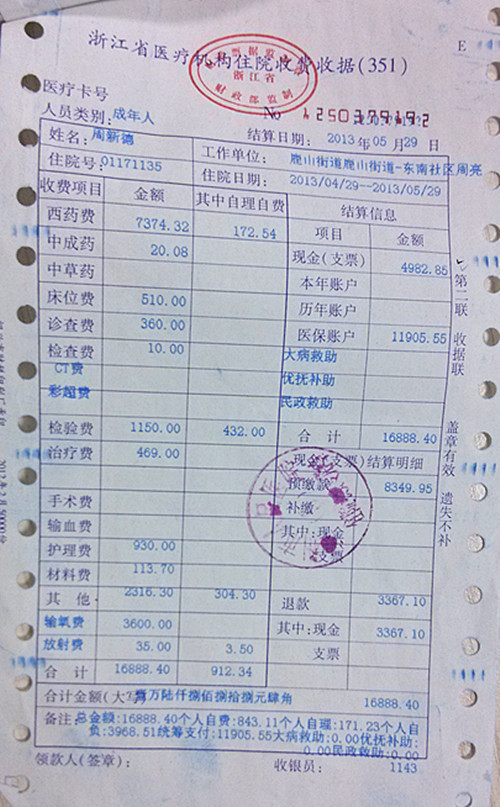 浙江省医疗机构住院收费收据(351)
浙江省
财政部监制
E
医疗卡号
No
人员类别:成年人
结算日期: 2013 年 05 月 29 日
姓名:周新德
工作单位: 鹿山街道鹿山街道-东南社区周亮
住院号:01171135
住院日期: 2013/04/29--2013/05/29
收费项目 金额 其中自理自费 结算信息
西药费 7374.32 172.54 项目 金额
中成药 20.08 现金(支票) 4982.85
中草药 本年账户
床位费 510.00 历年账户
诊查费 360.00 医保账户 11905.55
检查费 10.00 大病救助
CT费 优抚补助
彩超费 民政救助
检验费 1150.00 432.00 合计 16888.40
治疗费 469.00 现金(支票)结算明细
预缴款 8349.95
手术费 补缴
输血费 其中:现金
护理费 930.00 支票
材料费 113.70
其他 2316.30 304.30 退款 3367.10
输氧费 3600.00 其中:现金 3367.10
放射费 35.00 3.50 支票
合计 16888.40 912.34
合计金额(大写)壹万陆仟捌佰捌拾捌元肆角 16888.40
备注:总金额:16888.40个人自费:843.11个人自理:171.23个人自
负:3968.51统筹支付:11905.55大病救助:0.00优抚补助:
0.00民政救助:0.00
领款人(签章): 收银员: 1143
第二联 收据联 盖章有效 遗失不补